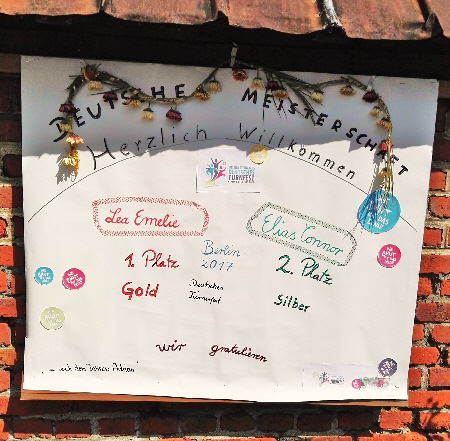 DEUTSCHE MEISTERSCHAFT
Herzlich Willkommen
DEUTSCHES
TURNFEST
Lea Emelie
Elias Connor
1. Platz
Berlin
2017
2. Platz
Gold
Deutsches
Turnfest
Silber
wir gratulieren